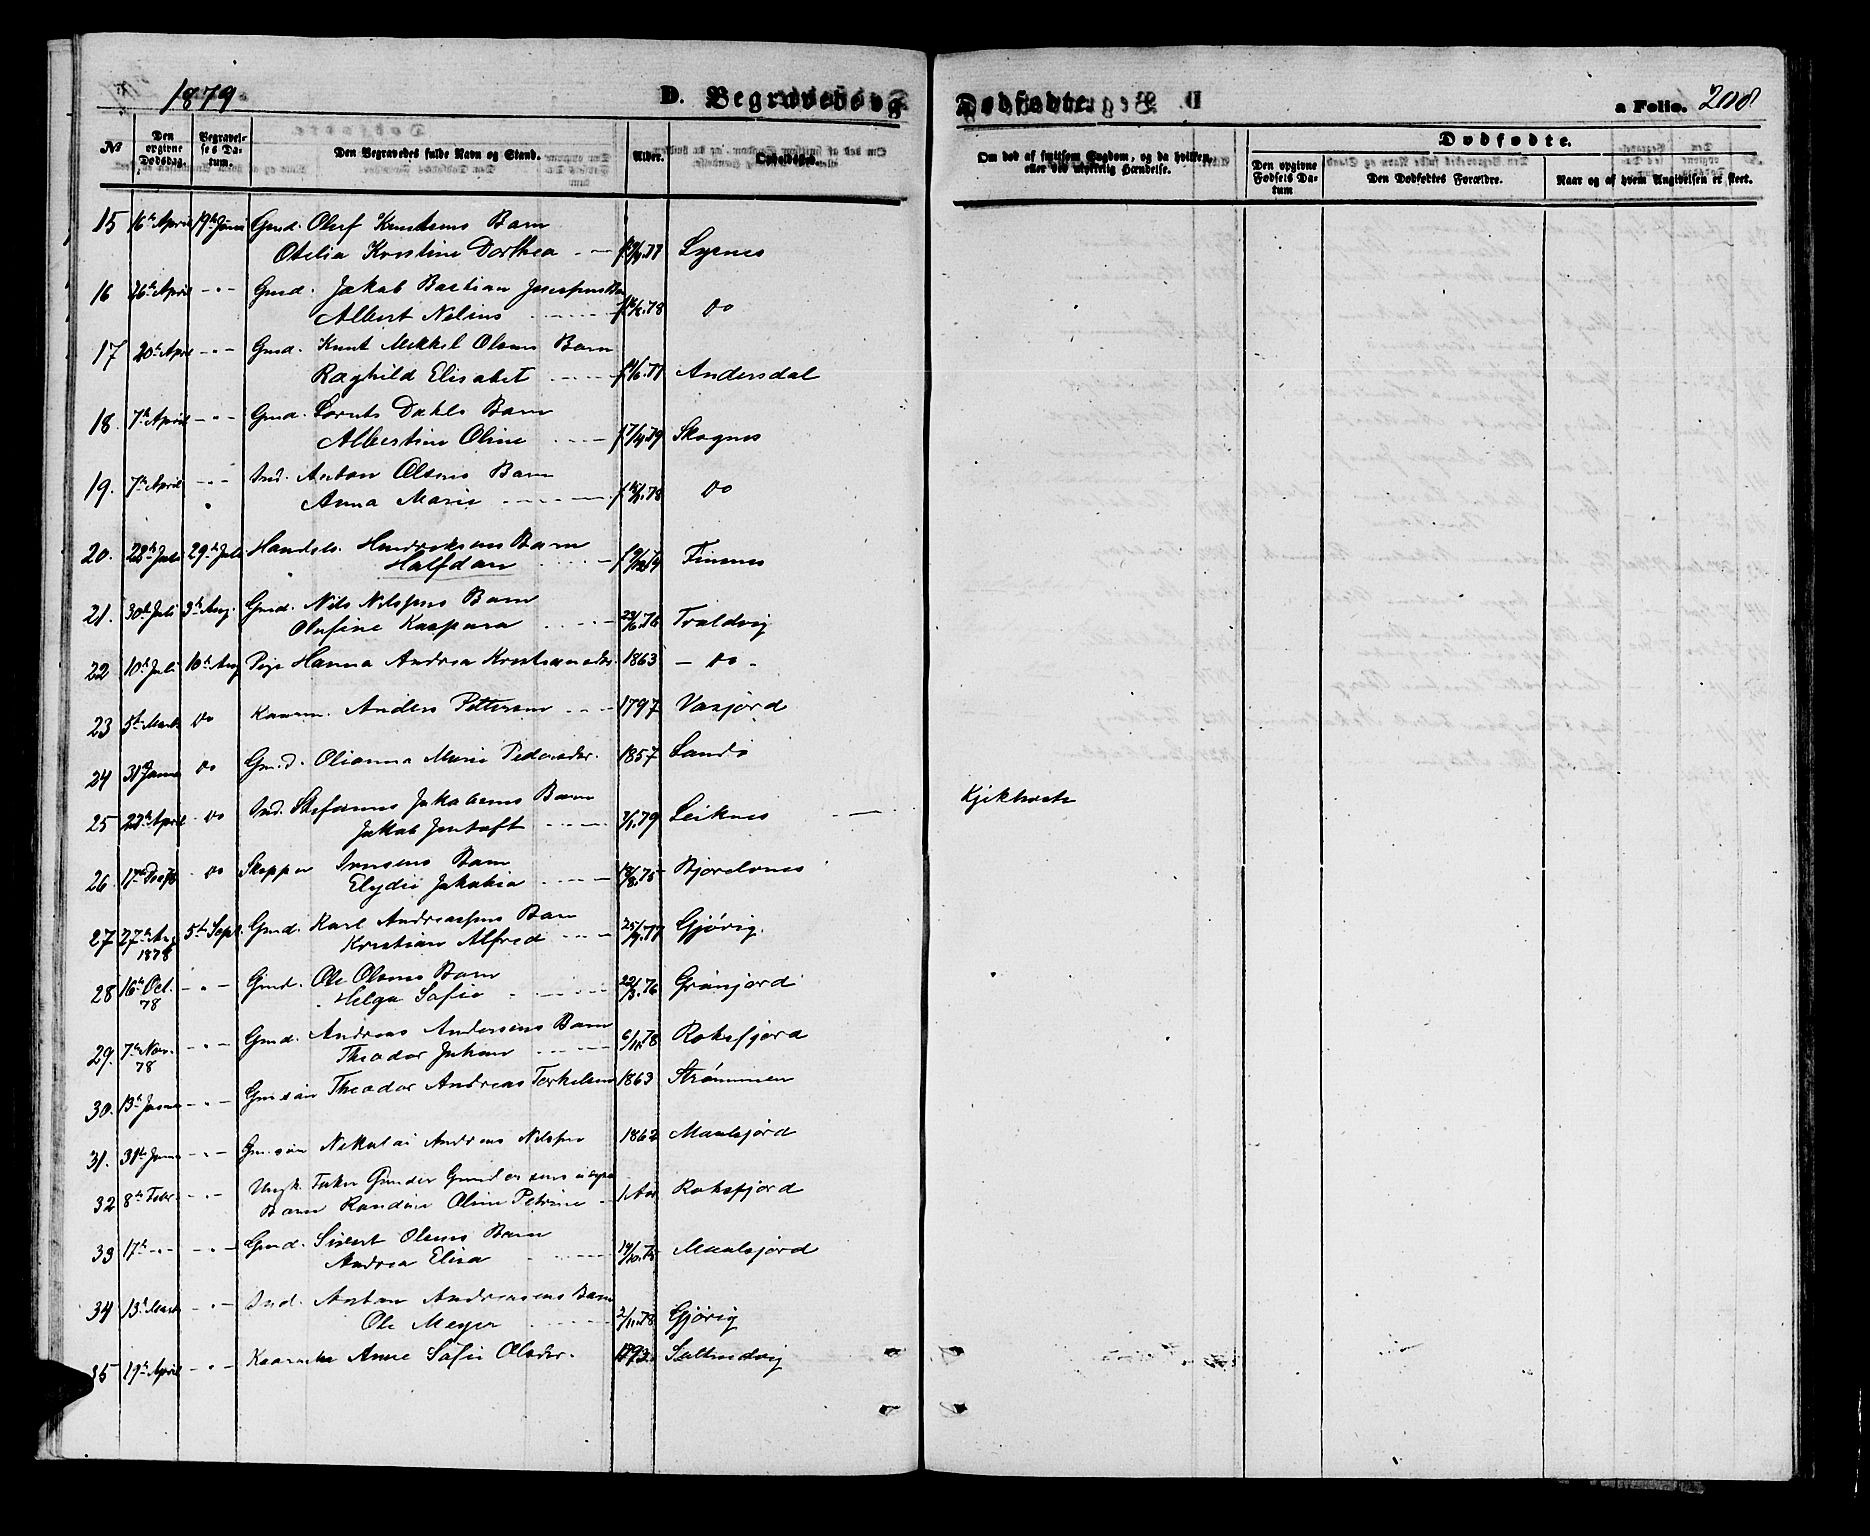 1879
D. Begravede og
No
Den opgivne Dødsdag.
Begravelses Datum.
Den Begravedes fulde Navn og Stand.
Alder.
Opholdssted.
15 16de April 19de Juni Gmd. Oluf Knutsens Barn
Otelia Kristine Dorthea Lysnes
16 26de April - " - Gmd. Jakob Bastian Josefsens Barn
Albert Nelius Do
17 20de April - " - Gmd. Knut Mikkel Olsens Barn
Raghild Elisabet Andersdal
18. 7de April - " - Gmd. Lornts Dahls Barn
Albertine Oline f 7/4.79 Skognes
19. 7de April - " - Ind. Anton Olsens Barn
Anna Marie Do
20. 28de Juli 29de Juli Handels. Hendriksens Barn
Halfdan Finnes
21. 30de Juli 3de Aug. Gmd. Nils Nilsens Barn
Olufine Kaspara 23/6.76 Traldvig
22 10de Juli 10de Aug Pige Hanna Andrea Kristiansdr. 1863 - Do -
23 5te Marts Do Kaarm. Anders Pettersen 1797 Vasjord
24 31te Janua Do Gmd. Olianna Marie Pedersdr. 1857 Sandø
25 27de April Do Ind. Stefanus Jakobsens Barn
Jakob Jentoft 7/1.79 Leiknes
26. Do Skipper Jensens Barn
Elydie Jakobia 18/8.75 Bjorelvnes
27 27de Aug 1878 5te Sept. Gmd. Karl Andreassens Barn
Kristian Alfred 25/9.77 Gjøvig.
28 16de Oct. 78 - " - Gmd. Ole Olsens Barn
Helga Sofie 22/3.76 Grønjord
29. 7de Nov. 78 - " - Gmd. Andreas Andersens Barn
Theodor Johan 6/11.78 Roksfjord
30. 13de Janua - " - Gm.søn Theodor Andreas Terkelsen 1863 Strømmen
31. 31te Janua - " - Gm.søn Nikolai Andreas Nilsen 1862 Maalsjord
32 8de Febr. - " - Ungk. Gunder Gundersens uægte
Barn Randine Oline Petrine 1 Aar Roksfjord
33 17de - " - - " - Gmd. Sivert Olsens Barn
Andrea Elisa 19/10.75 Maalsjord
34 13de Marts - " - Ind. Anton Andreasens Barn
Ole Meyer 2/11.78 Gjøvig
35 19de April - " - Kaarenke Anne Sofie Olsdr. Sultindvig
Dødfødte.
a Folio. 208
Om død af smitsom Sygdom, og da hvilken, eller ved ulykkelig Hændelse.
Dødfødte.
Den opgivne Fødsels Datum
Den Dødfødtes Forældre.
Naar og af hvem Angivelsen er skeet.
Kjikhoste